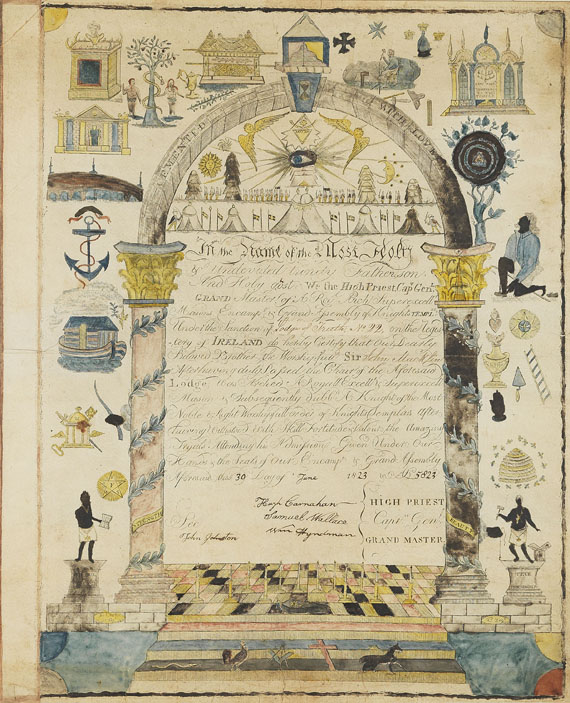 CEMENTED WITH LOVE
In the Name of the Most Holy
& Undivided Trinity Father Son
And Holy We the High Priest Cap Gen
GRAND Master of A Royal Arch Superexcell
Masons Encamp & Grand Assembly of Knights
Under the Sanction of Lodge of Truth No 22 on the Regis
try of IRELAND do hereby Certify that Our Dearly
Beloved Brother the Worshipful Sir John
After having duly Passed the Chair of the Aforesaid
Lodge Was Arched A Royal Excell & Superexcell
Mason & Subsequently Dubb A Knight of the Most
Noble & Right Worshipful Order of Knights Templars After
having With Skill Fortitude & Valour the Amazing
Tryals Attending his Admission Given Under Our
Hands & the Seals of Our Encamp & Grand Assembly
Aforesaid this 30 Day of June 1823 5823
Hugh Carnahan HIGH PRIEST
Samuel Wallace Capt Gen
Wm Hyndman GRAND MASTER
John Johnston